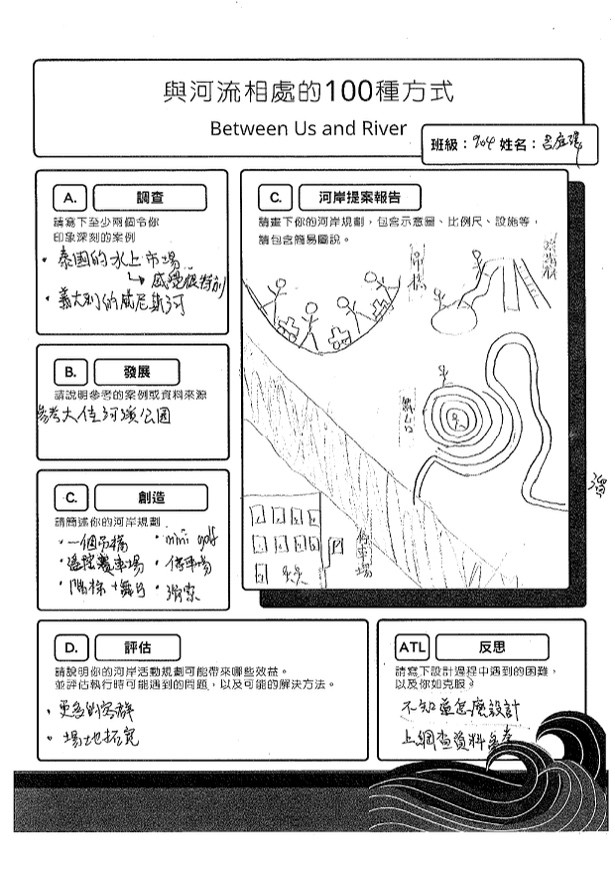 與河流相處的100種方式
Between Us and River
班級：904 姓名：呂庭
A. 調查
請寫下至少兩個令你
印象深刻的案例
• 泰國的水上市場
↳ 感覺很特別
• 義大利的威尼斯河
B. 發展
請說明參考的案例或資料來源
參考大佳河濱公園
C. 創造
請簡述你的河岸規劃
• 一個吊橋 • mini golf
• 遙控賽車場 • 停車場
• 階梯+舞台 • 滑索
C. 河岸提案報告
請畫下你的河岸規劃，包含示意圖、比例尺、設施等，
請包含簡易圖說。
吊橋
舞台
停車場
P
D. 評估
請說明你的河岸活動規劃可能帶來哪些效益。
並評估執行時可能遇到的問題，以及可能的解決方法。
• 更多的客群
• 場地拓寬
ATL 反思
請寫下設計過程中遇到的困難，
以及你如克服？
不知道怎麼設計
上網查資料參考